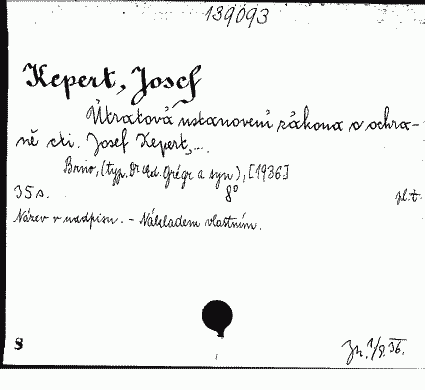 139093
Kepert, Josef
Útratová ustanovení zákona o ochra-
ně cti. Josef Kepert,...
Brno, (typ. Dr Ed. Grégr a syn), [1936]
35 s. 8° pl. t.
Název v nadpisu. - Nákladem vlastním.
8